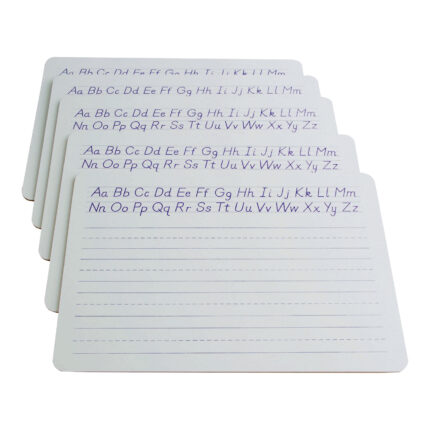 Aa Bb Cc Dd Ee Ff Gg Hh Ii Jj Kk Ll Mm
Aa Bb Cc Dd Ee Ff Gg Hh Ii Jj Kk Ll Mm
Aa Bb Cc Dd Ee Ff Gg Hh Ii Jj Kk Ll Mm
Nn Oo Pp Qq Rr Ss Tt Uu Vv Ww Xx Yy Zz
Aa Bb Cc Dd Ee Ff Gg Hh Ii Jj Kk Ll Mm
Nn Oo Pp Qq Rr Ss Tt Uu Vv Ww Xx Yy Zz
Aa Bb Cc Dd Ee Ff Gg Hh Ii Jj Kk Ll Mm
Nn Oo Pp Qq Rr Ss Tt Uu Vv Ww Xx Yy Zz